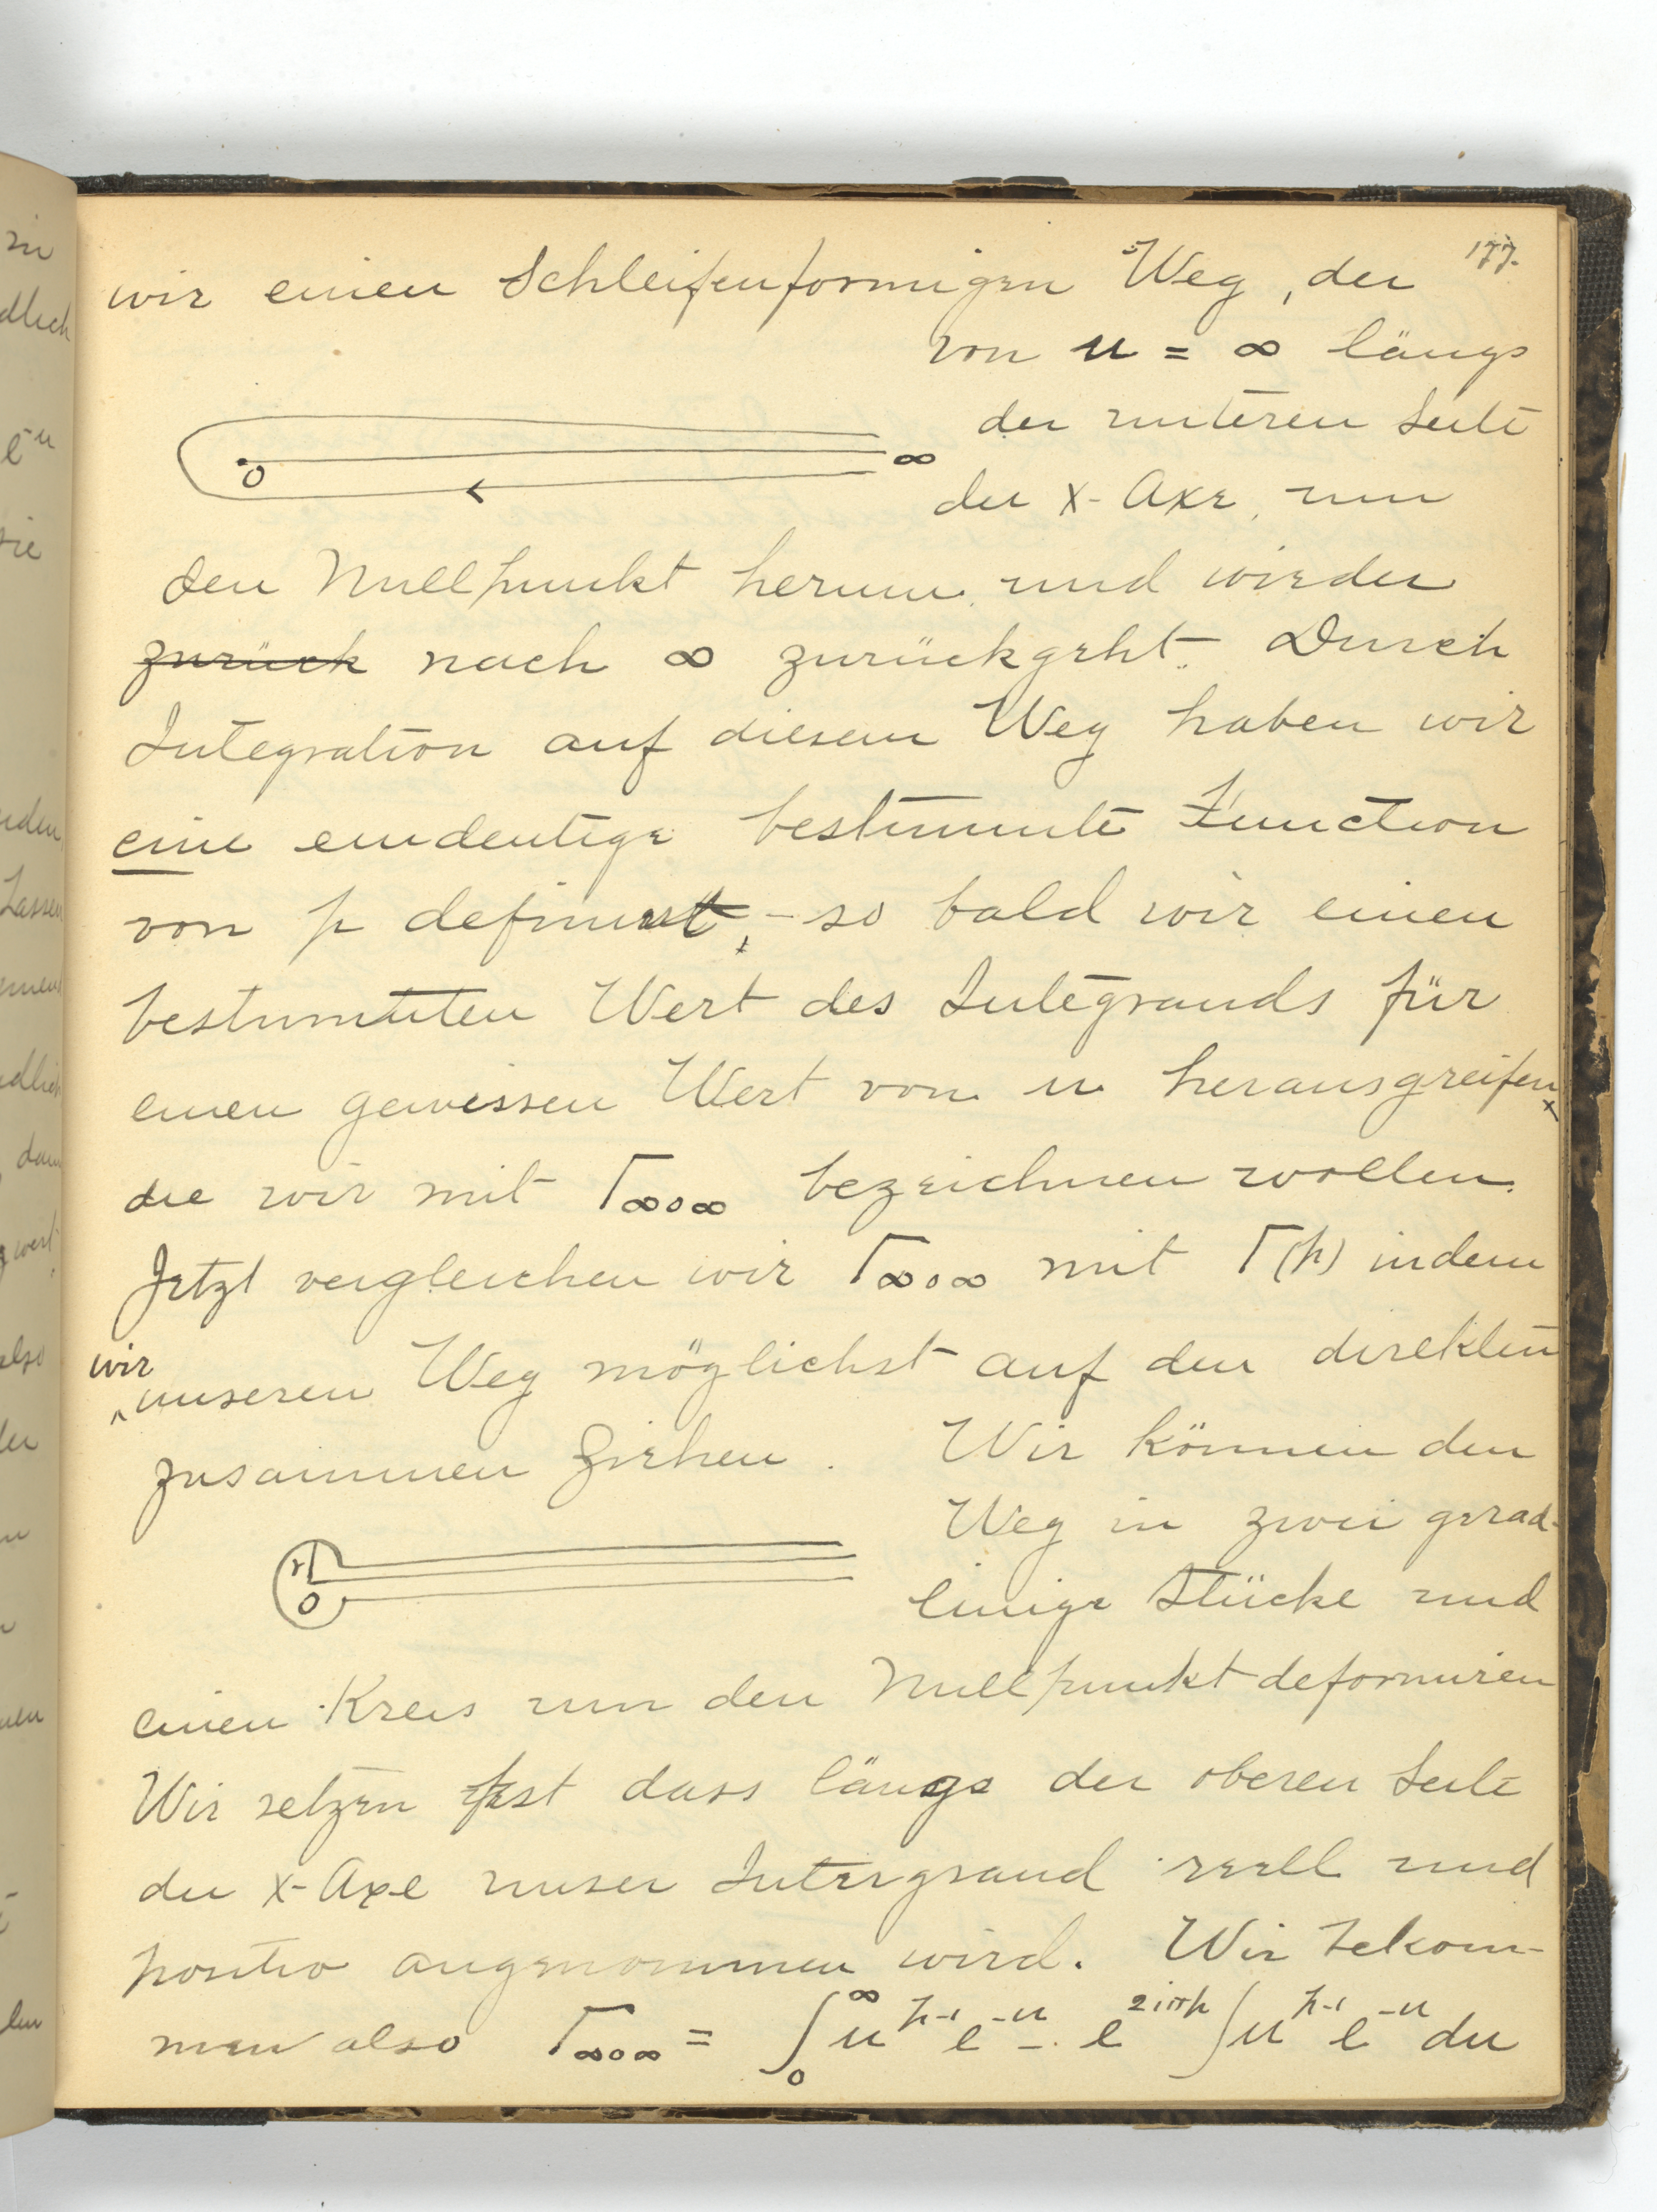 177.
wir einen Schleifenformigen Weg, der
von u = ∞ längs
der unteren Seite
der x-Axe, um
den Nullpunkt herum und wieder
zurück nach ∞ zurückgeht. Durch
Integration auf diesem Weg haben wir
eine eindeutige bestimmte Function
von p definirt, - so bald wir einen
bestimmten Wert des Integrands für
einen gewissen Wert von u herausgreifen,
die wir mit Γ∞0∞ bezeichnen wollen.
Jetzt vergleichen wir Γ∞0∞ mit Γ(p) indem
wir unseren Weg möglichst auf den direkten
zusammen ziehen. Wir können den
Weg in zwei grad-
linige Stücke und
einen Kreis um den Nullpunkt deformiren
Wir setzen fest dass längs der oberen Seite
der x-Axe unser Intergrand reell und
positiv angenommen wird. Wir bekom-
men also Γ∞0∞ = ∫₀^∞ u^{p-1} e^{-u} - e^{2iπp} ∫ u^{p-1} e^{-u} du
∞
0
r
0